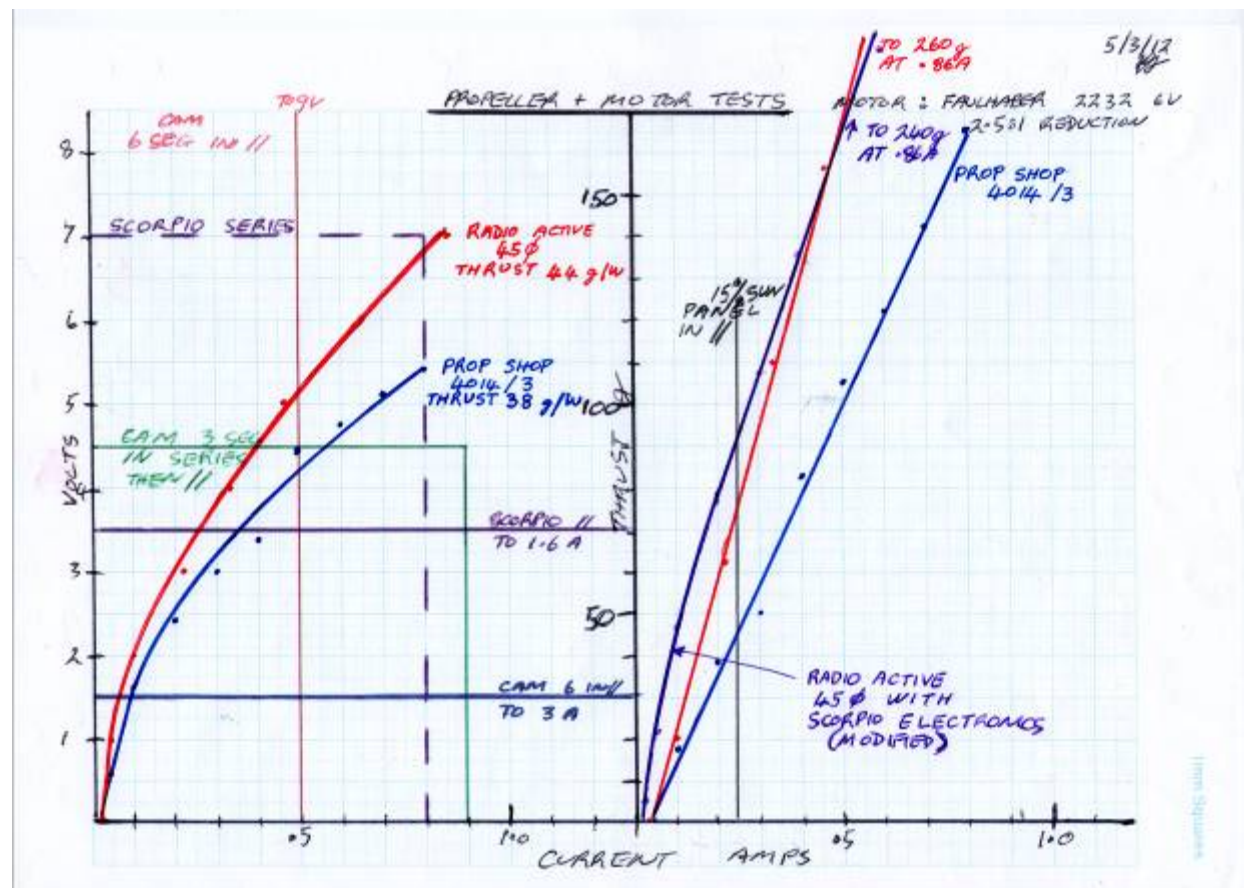 5/3/12
PROPELLER + MOTOR TESTS
MOTOR : FAULHABER 2232 6V
2.5:1 REDUCTION
TO 260g
AT .86A
↑ TO 240g
AT .86A
PROP SHOP
4014/3
TO 9V
CAM
6 SEG IN //
SCORPIO SERIES
RADIO ACTIVE
45Ø
THRUST 44 g/W
PROP SHOP
4014/3
THRUST 38 g/W
CAM 3 SEG
IN SERIES
THEN //
SCORPIO //
TO 1.6 A
CAM 6 IN //
TO 3 A
VOLTS
8
7
6
5
4
3
2
1
.5
1.0
15% SUN
PANEL
IN //
THRUST g
150
100
50
RADIO ACTIVE
45Ø WITH
SCORPIO ELECTRONICS
(MODIFIED)
.05
1.0
CURRENT AMPS
1mm Squares